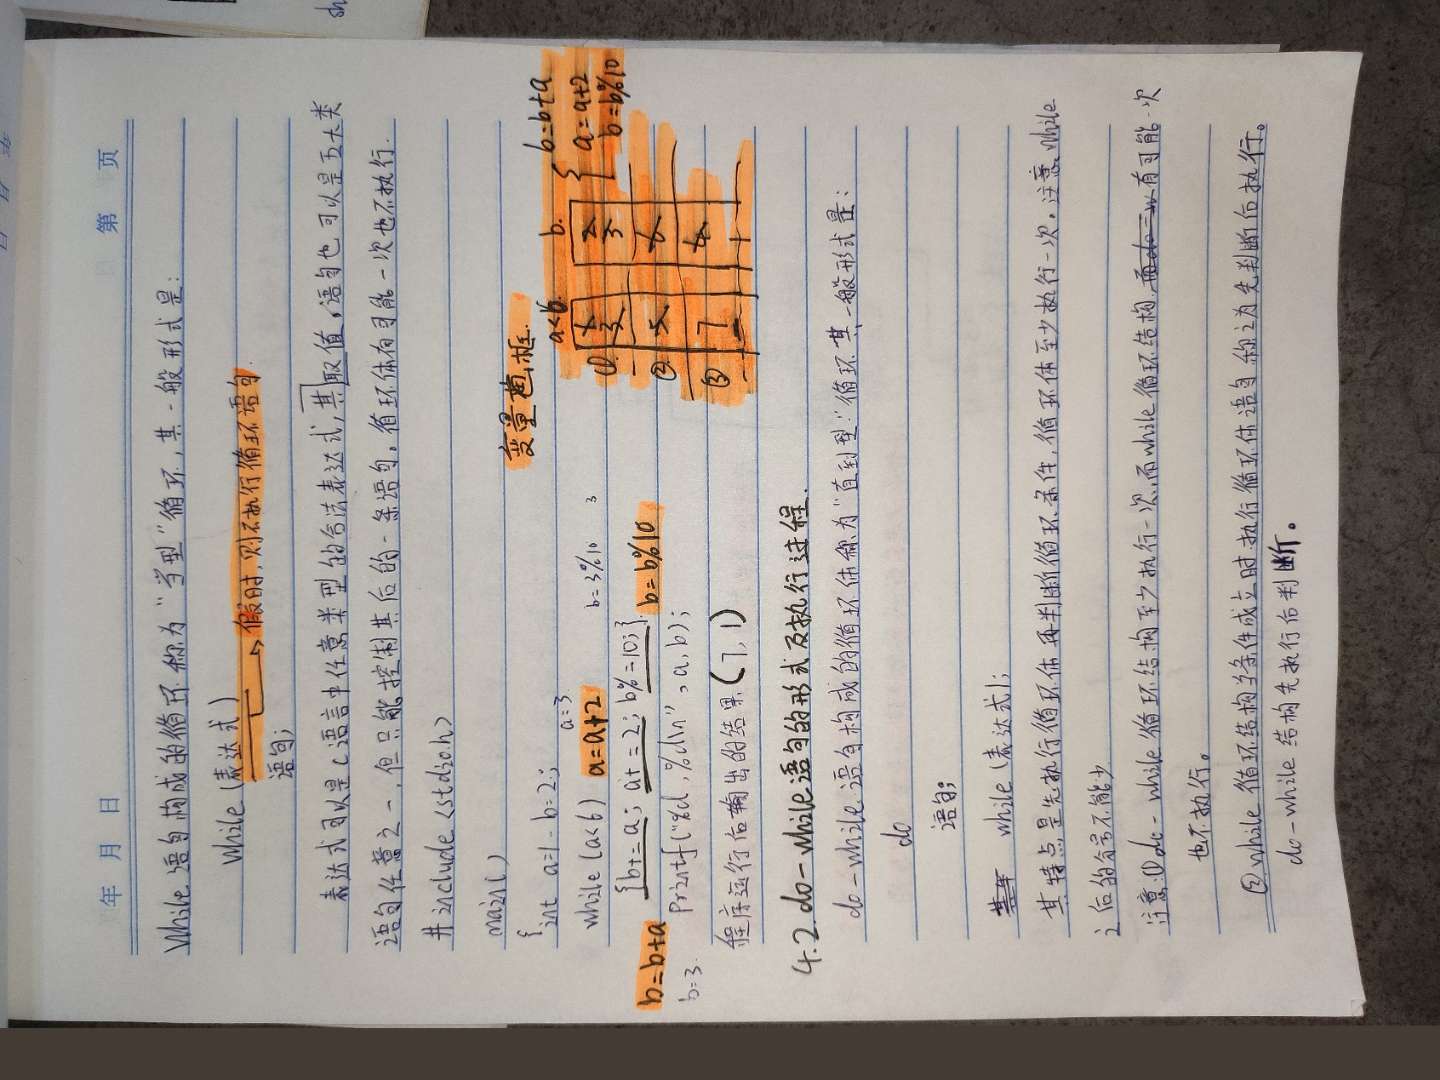 年 月 日 第 页
While 语句构成的循环称为“当型”循环,其一般形式是:
while(表达式)
假时,则不执行循环语句
语句;
表达式可以是C语言中任意类型的合法表达式,其取值,语句也可以是五大类
语句任意之一,但只能控制其后的一条语句。循环体有可能一次也不执行.
#include <stdio.h>
main()
变量画框.
{int a=1, b=2;
a=3
b=3%10 3
while(a<b)
a=a+2
{b+=a; a+=2; b%=10;}
b=b%10
b=b+a
b=3.
printf("%d,%d\n",a,b);
程序运行后输出的结果(7,1)
a<b b.
{b=b+a
a=a+2
b=b%10
① 3 3
② 5 6
③ 7 1
4.2 do-while语句的形式及执行过程.
do-while语句构成的循环体称为“直到型”循环其一般形式是:
do
语句;
while(表达式);
其特点是先执行循环体再判断循环条件,循环体至少执行一次,注意while
()后的分号不能少
注意:①do-while循环结构至少执行一次,而while循环结构有可能一次
也不执行。
②while循环结构当条件成立时执行循环体语句称之为先判断后执行。
do-while结构先执行后判断。